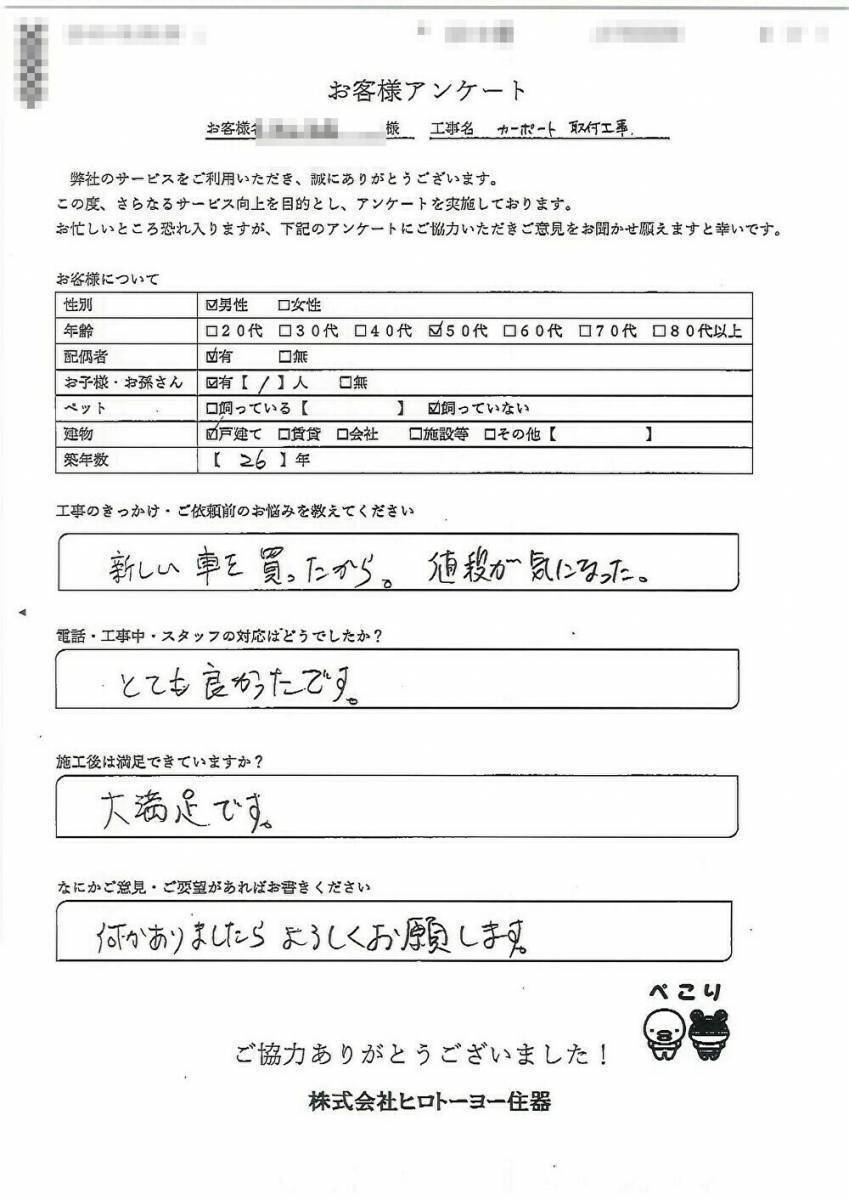 お客様アンケート
お客様名 様 工事名 カーポート 取付工事.
弊社のサービスをご利用いただき、誠にありがとうございます。
この度、さらなるサービス向上を目的とし、アンケートを実施しております。
お忙しいところ恐れ入りますが、下記のアンケートにご協力いただきご意見をお聞かせ願えますと幸いです。
お客様について
性別 ☑男性 □女性
年齢 □20代 □30代 □40代 ☑50代 □60代 □70代 □80代以上
配偶者 ☑有 □無
お子様・お孫さん ☑有【 1 】人 □無
ペット □飼っている【 】 ☑飼っていない
建物 ☑戸建て □賃貸 □会社 □施設等 □その他【 】
築年数 【 26 】年
工事のきっかけ・ご依頼前のお悩みを教えてください
新しい車を買ったから。 値段が気になった。
電話・工事中・スタッフの対応はどうでしたか?
とても良かったです。
施工後は満足できていますか?
大満足です。
なにかご意見・ご要望があればお書きください
何かありましたらよろしくお願します。
ぺこり
ご協力ありがとうございました!
株式会社ヒロトーヨー住器